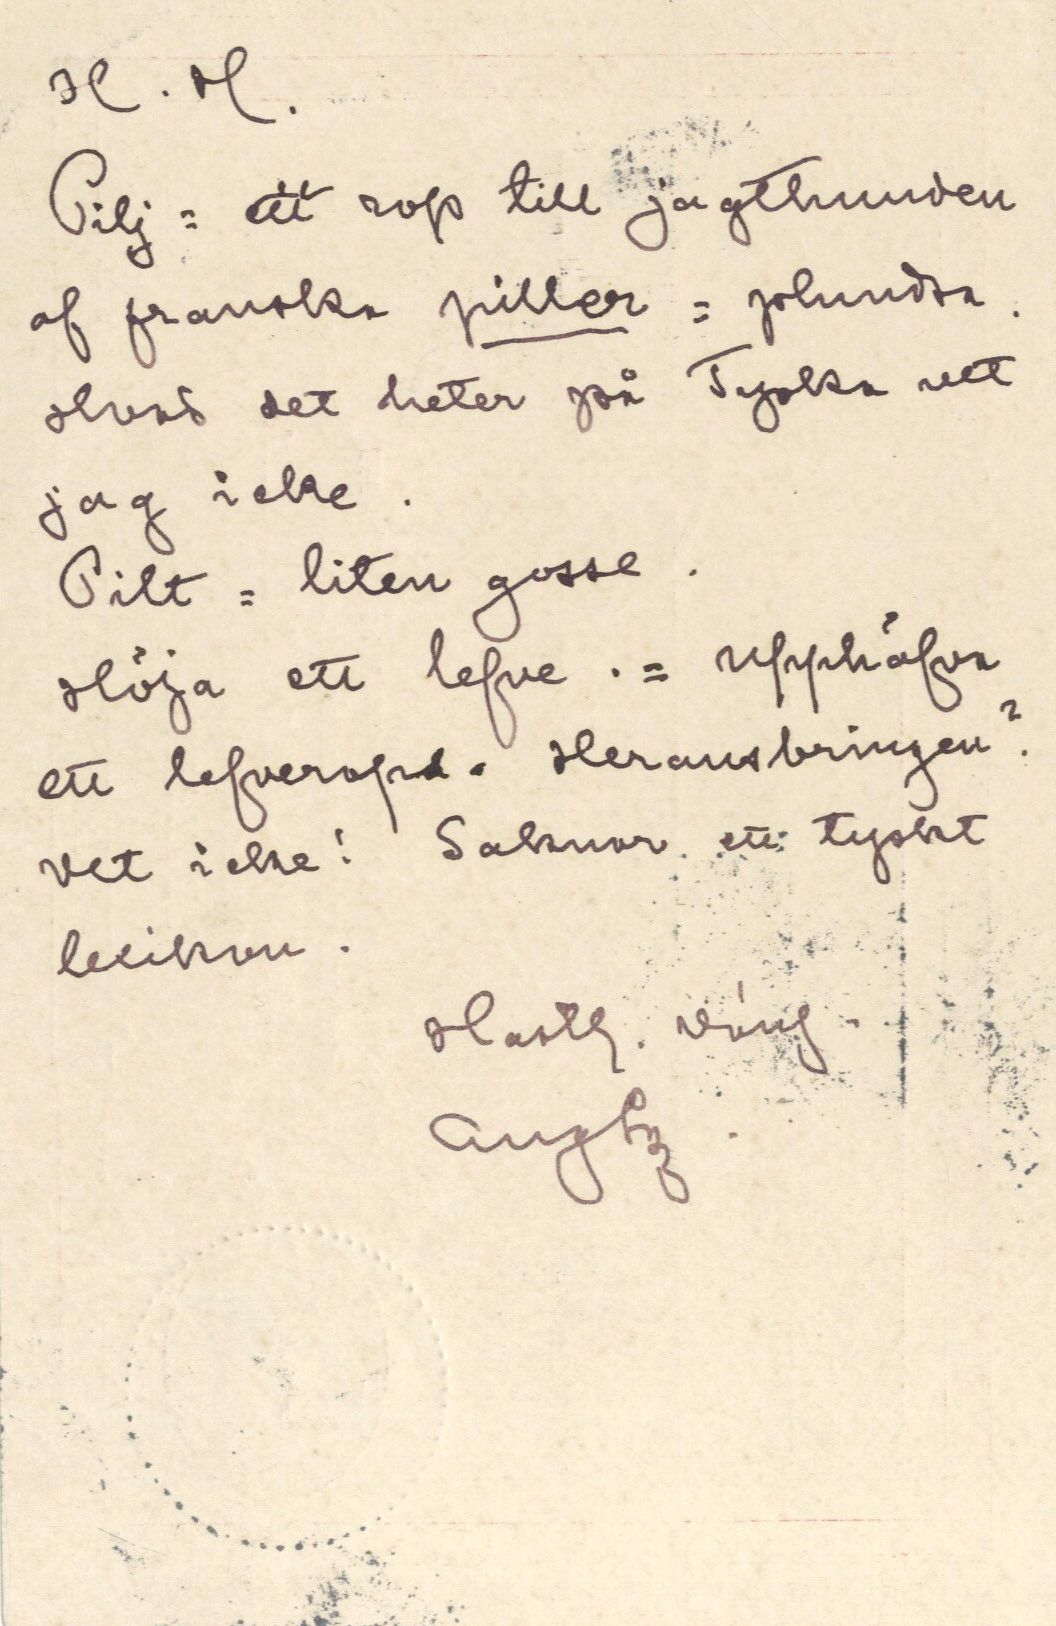 H. H.
Pilj = ett rop till jagthunden
af franska piller = plundra.
Hvad det heter på Tyska vet
jag icke.
Pilt = liten gosse.
Höja ett lefve. = Upphäfva
ett lefverop. Herausbringen?.
Vet icke! Saknar ett tyskt
lexikon.
Hastl. väng.
AugSg.